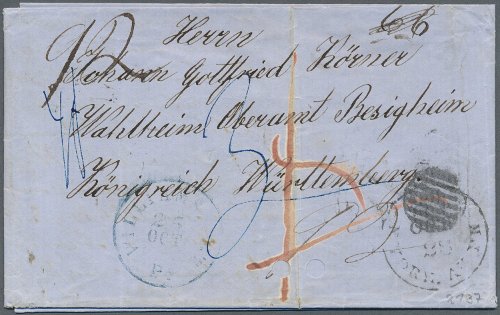 Herrn
Johann Gottfried Körner
Wahlheim Oberamt Besigheim
Königreich Württemberg.
OCT
PA
YORK